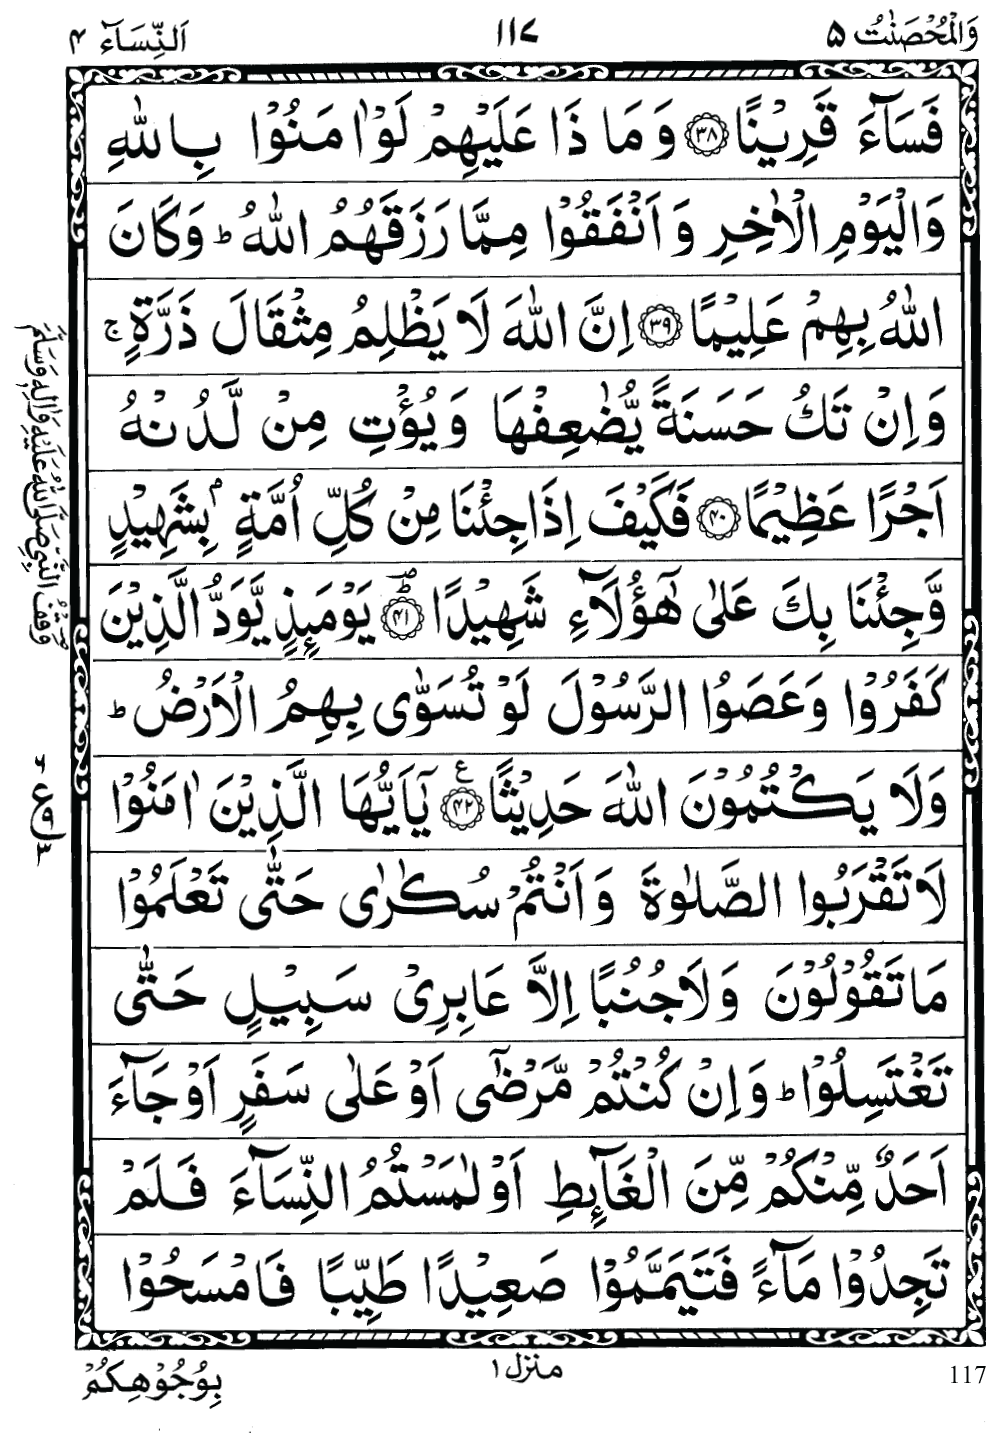 وَالْمُحْصَنٰتُ ۵
۱۱۷
اَلنِّسَآء ۴
فَسَآءَ قَرِيْنًا ﴿۳۸﴾ وَ مَا ذَا عَلَيْهِمْ لَوْ اٰمَنُوْا بِاللّٰهِ
وَالْيَوْمِ الْاٰخِرِ وَ اَنْفَقُوْا مِمَّا رَزَقَهُمُ اللّٰهُ ؕ وَكَانَ
اللّٰهُ بِهِمْ عَلِيْمًا ﴿۳۹﴾ اِنَّ اللّٰهَ لَا يَظْلِمُ مِثْقَالَ ذَرَّةٍ ۚ
وَ اِنْ تَكُ حَسَنَةً يُّضٰعِفْهَا وَ يُؤْتِ مِنْ لَّدُنْهُ
اَجْرًا عَظِيْمًا ﴿۴۰﴾ فَكَيْفَ اِذَا جِئْنَا مِنْ كُلِّ اُمَّةٍۭ بِشَهِيْدٍ
وَّجِئْنَا بِكَ عَلٰى هٰٓؤُلَآءِ شَهِيْدًا ﴿۴۱﴾ؕؔ يَوْمَئِذٍ يَّوَدُّ الَّذِيْنَ
كَفَرُوْا وَ عَصَوُا الرَّسُوْلَ لَوْ تُسَوّٰى بِهِمُ الْاَرْضُ ؕ
وَلَا يَكْتُمُوْنَ اللّٰهَ حَدِيْثًا ﴿۴۲﴾ ع يٰٓاَيُّهَا الَّذِيْنَ اٰمَنُوْا
لَا تَقْرَبُوا الصَّلٰوةَ وَ اَنْتُمْ سُكٰرٰى حَتّٰى تَعْلَمُوْا
مَا تَقُوْلُوْنَ وَ لَا جُنُبًا اِلَّا عَابِرِيْ سَبِيْلٍ حَتّٰى
تَغْتَسِلُوْا ؕ وَ اِنْ كُنْتُمْ مَّرْضٰۤى اَوْ عَلٰى سَفَرٍ اَوْ جَآءَ
اَحَدٌ مِّنْكُمْ مِّنَ الْغَآئِطِ اَوْ لٰمَسْتُمُ النِّسَآءَ فَلَمْ
تَجِدُوْا مَآءً فَتَيَمَّمُوْا صَعِيْدًا طَيِّبًا فَامْسَحُوْا
وقف النبي صَلَّى اللّٰهُ عَلَيْهِ وَاٰلِهٖ وَسَلَّمَ
بِوُجُوْهِكُمْ
منزل ۱
117